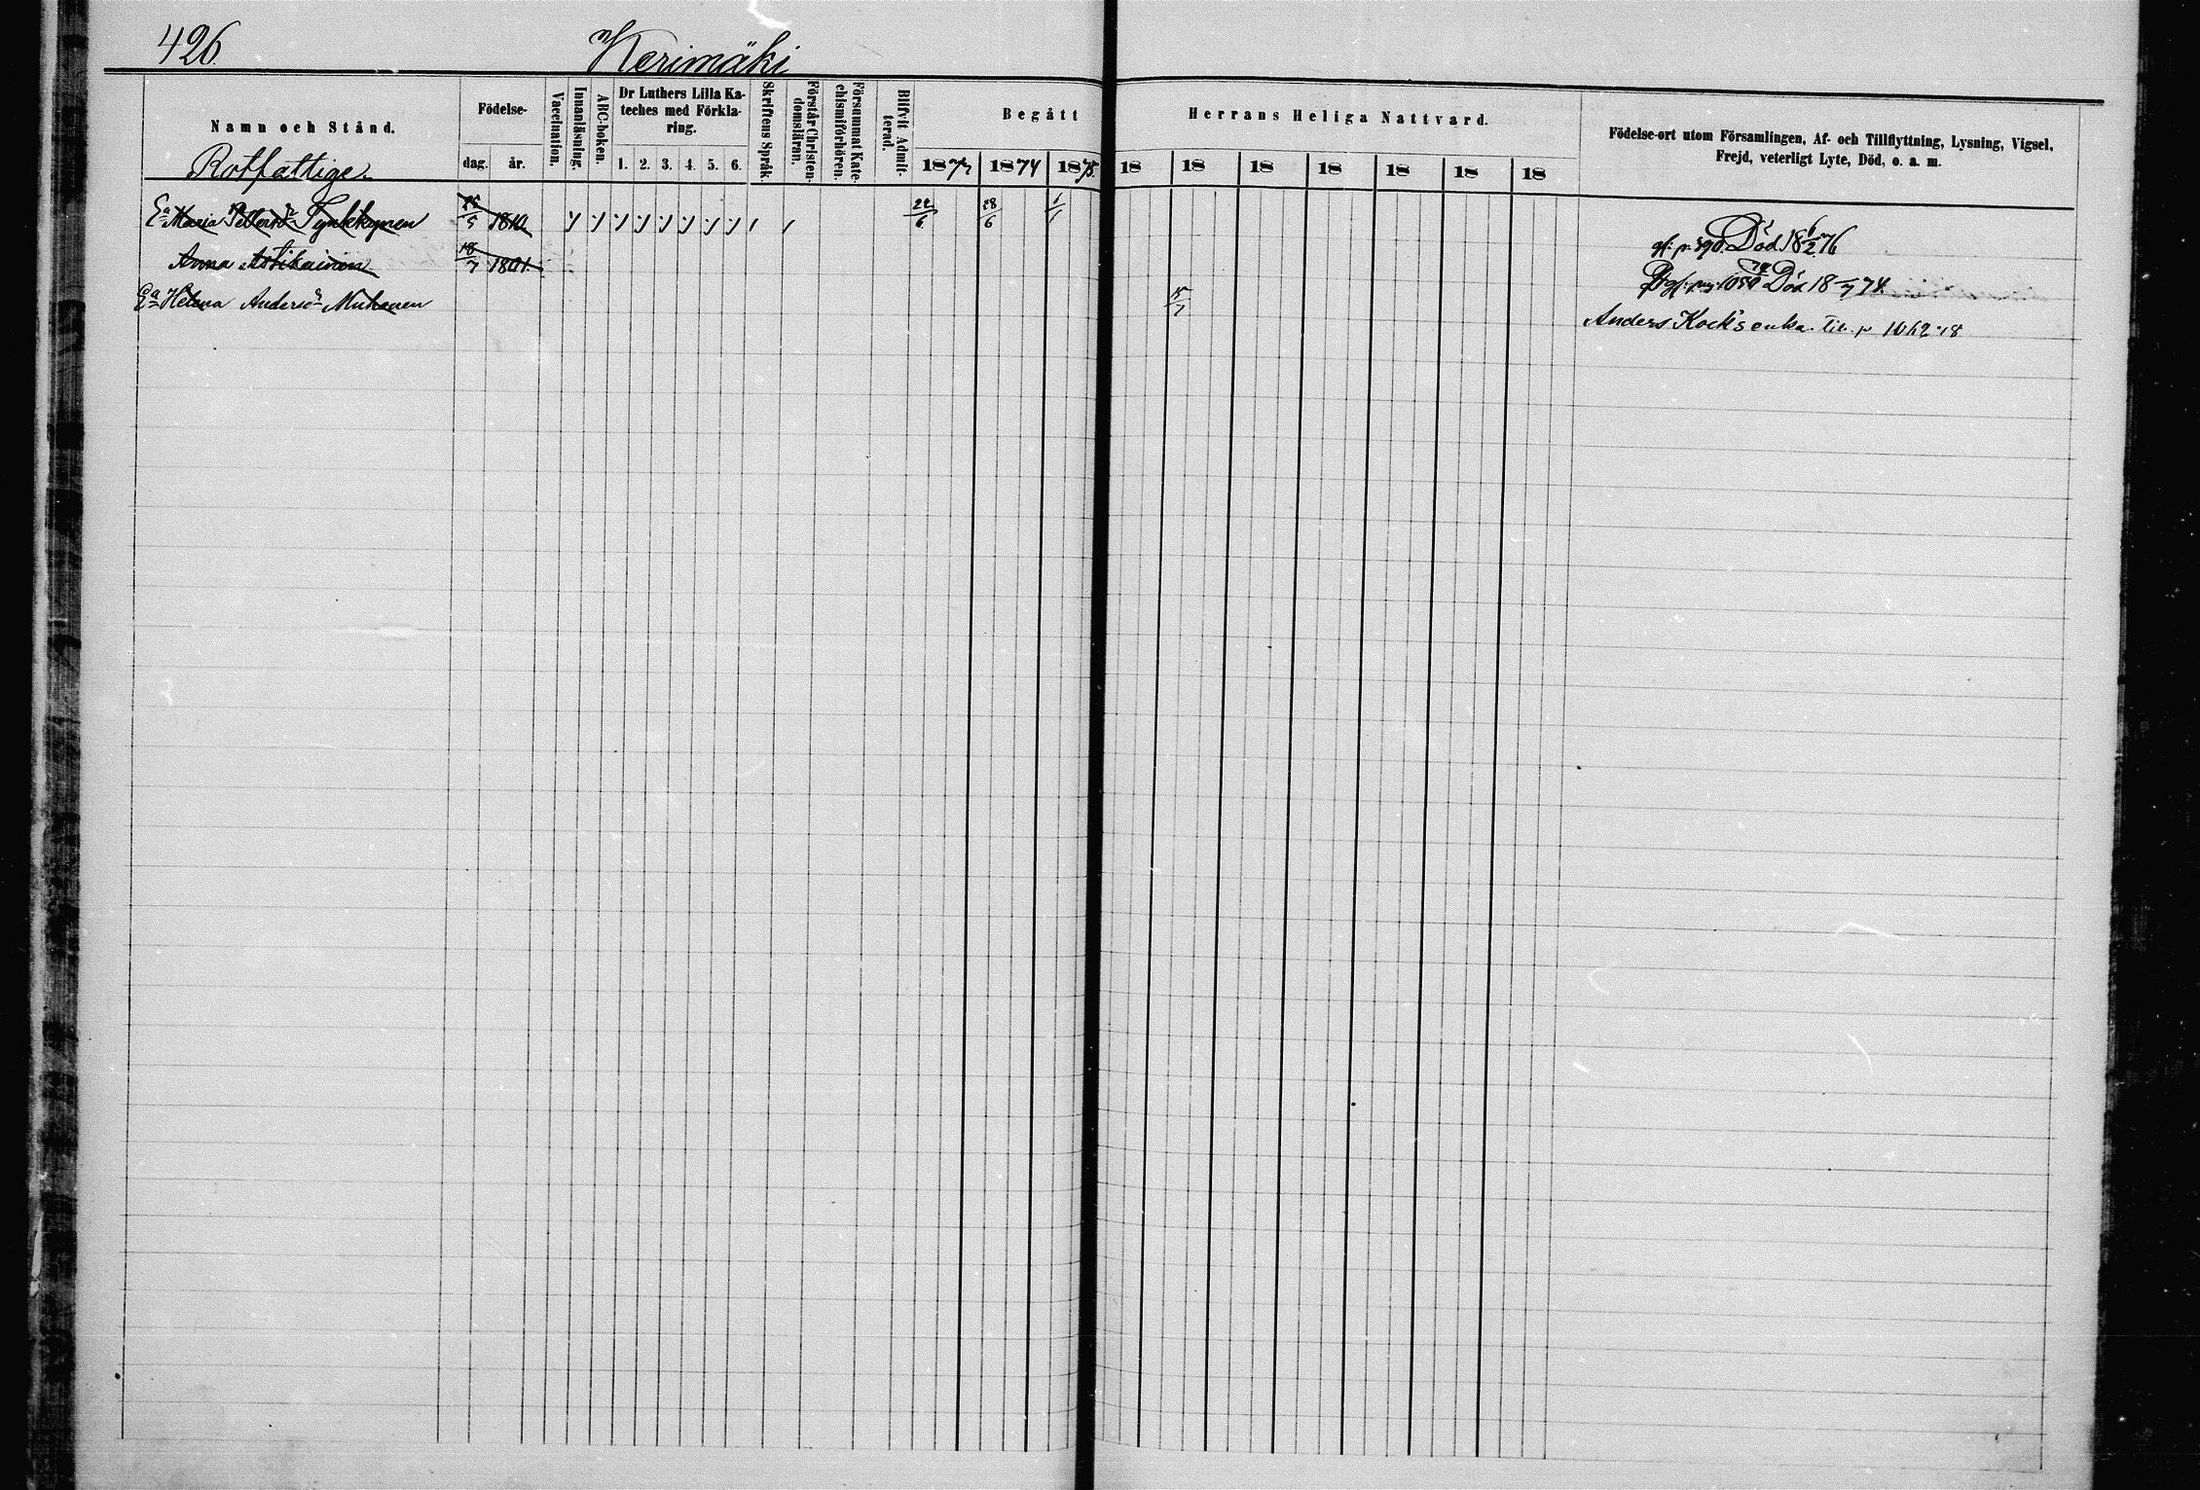 426.
Kerimäki
Namn och Stånd.
Födelse-
dag. år.
Vaccination.
Innanläsning.
ABC-boken.
Dr Luthers Lilla Ka-
teches med Förkla-
ring.
1. 2. 3. 4. 5. 6.
Skriftens Språk.
Förstår Christen-
domsläran.
Försummat Kate-
chismiförhören.
Blifvit Admit-
terad.
Begått Herrans Heliga Nattvard.
1873 1874 1875. 18 18 18 18 18 18 18
Födelse-ort utom Församlingen, Af- och Tillflyttning, Lysning, Vigsel,
Frejd, veterligt Lyte, Död, o. a. m.
Rotfattige.
Ea Maria Pettersdr Tynkkynen 5 1810. 22/6 28/6 1/1 Död 18 6/2 76
Anna Astikainen 18/7 1801. Död 18 7 74.
Ea Helena Andersdr Muhonen Anders Kock's enka.